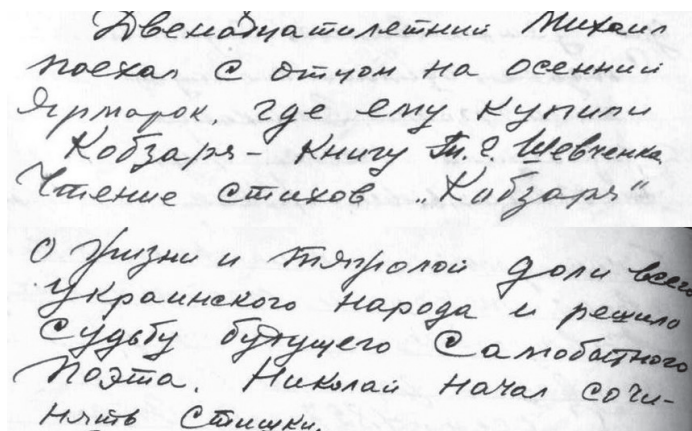 Двенадцатилетний Михаил
поехал с отцом на осенний
Ярмарок, где ему купили
Кобзаря - книгу Т. Г. Шевченка
Чтение стихов „Кобзаря"
о жизни и тяжолой доли всего
украинского народа и решило
судьбу будущего самобытного
поэта. Николай начал сочи-
нять стишки.